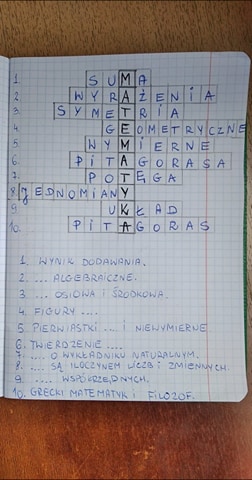 1. SUMA
2. WYRAŻENIA
3. SYMETRIA
4. GEOMETRYCZNE
5. WYMIERNE
6. PITAGORASA
7. POTĘGA
8. JEDNOMIANY
9. UKŁAD
10. PITAGORAS
1. WYNIK DODAWANIA.
2. .... ALGEBRAICZNE.
3. ... OSIOWA I ŚRODKOWA.
4. FIGURY ....
5. PIERWIASTKI ... I NIEWYMIERNE
6. TWIERDZENIE ....
7. .... O WYKŁADNIKU NATURALNYM.
8. .... SĄ ILOCZYNEM LICZB I ZMIENNYCH.
9. .... WSPÓŁRZĘDNYCH.
10. GRECKI MATEMATYK I FILOZOF.